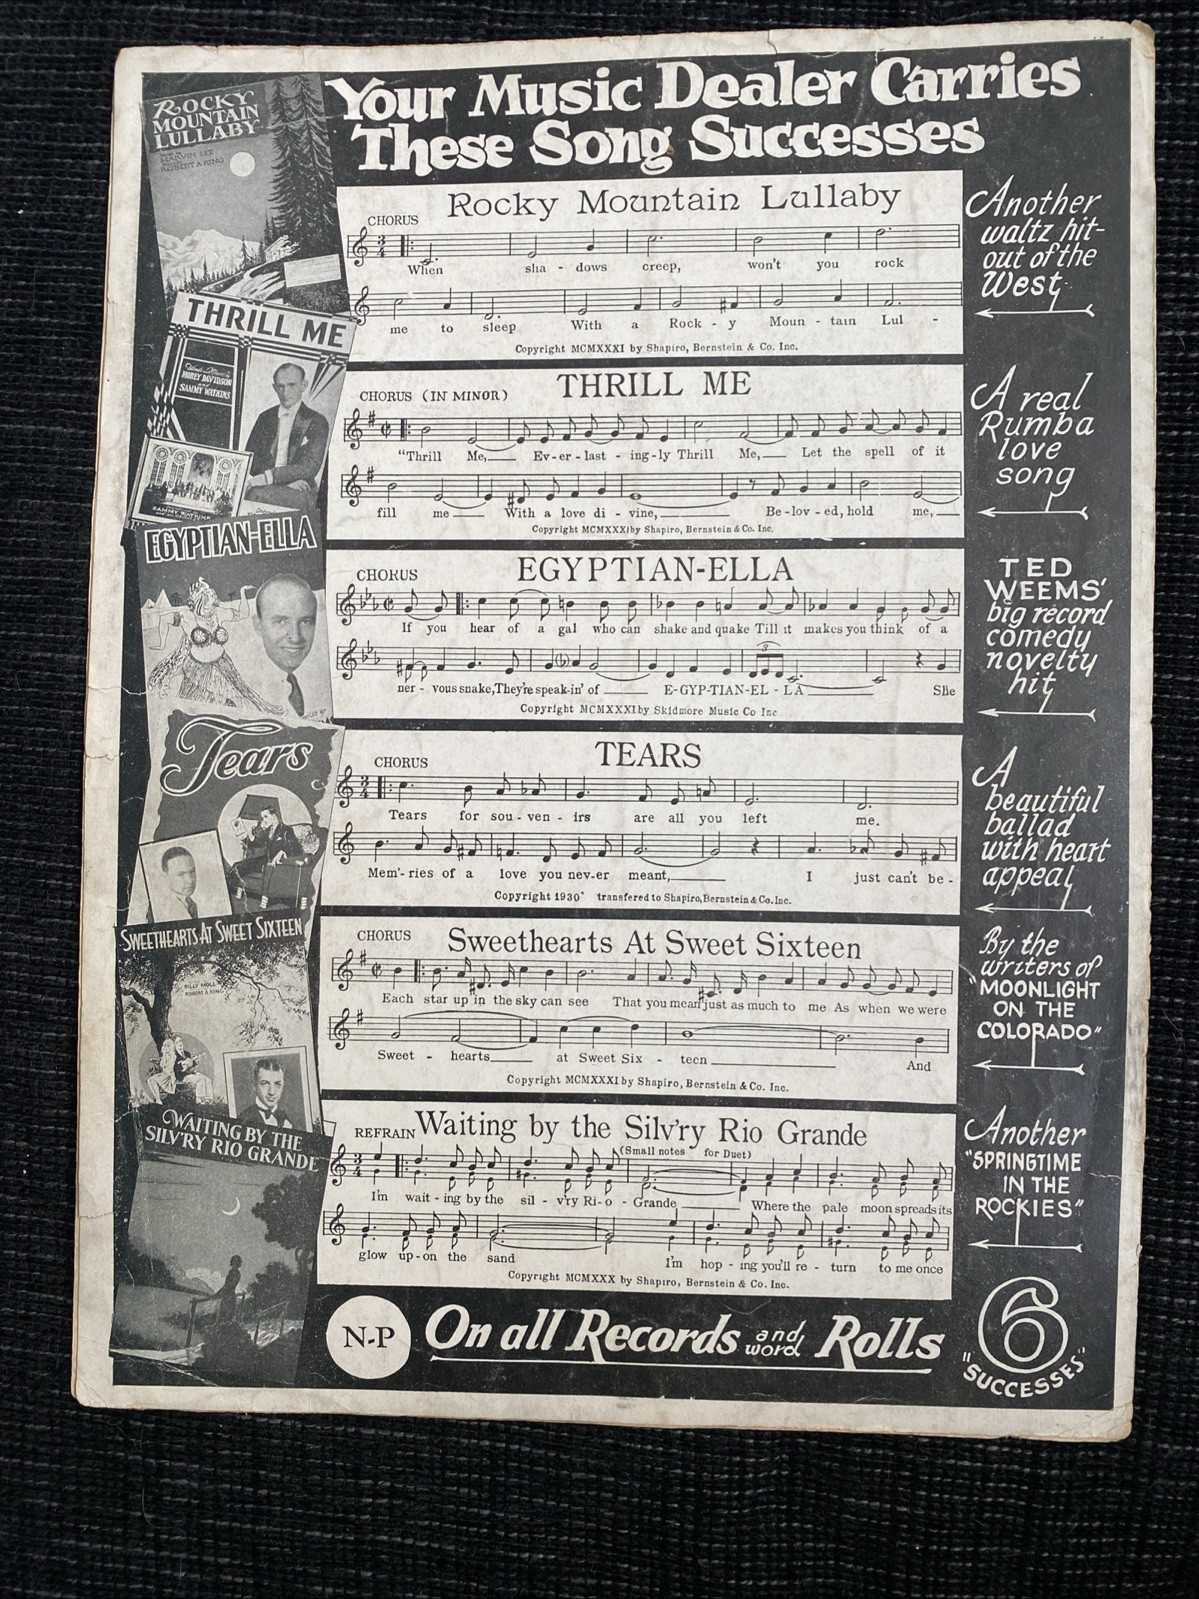 Your Music Dealer Carries
These Song Successes
ROCKY
MOUNTAIN
LULLABY
MARVIN LEE
ROBERT A. KING
CHORUS Rocky Mountain Lullaby
When sha - dows creep, won't you rock
me to sleep With a Rock - y Moun - tain Lul -
Copyright MCMXXXI by Shapiro, Bernstein & Co. Inc.
Another
waltz hit-
out of the
West
THRILL ME
Words & Music by
MOREY DAVIDSON
and
SAMMY WATKINS
SAMMY WATKINS
CHORUS (IN MINOR) THRILL ME
"Thrill Me, Ev-er-last-ing-ly Thrill Me, Let the spell of it
fill me With a love di - vine, Be-lov-ed, hold me,
Copyright MCMXXXI by Shapiro, Bernstein & Co. Inc.
A real
Rumba
love
song
EGYPTIAN-ELLA
CHORUS EGYPTIAN-ELLA
If you hear of a gal who can shake and quake Till it makes you think of a
3
ner - vous snake, They're speak-in' of E-GYP-TIAN-EL-LA She
Copyright MCMXXXI by Skidmore Music Co Inc
TED
WEEMS'
big record
comedy
novelty
hit
Tears
CHORUS TEARS
Tears for sou - ven - irs are all you left me.
Mem'-ries of a love you nev-er meant, I just can't be -
Copyright 1930 transfered to Shapiro, Bernstein & Co. Inc.
A
beautiful
ballad
with heart
appeal
SWEETHEARTS AT SWEET SIXTEEN
BILLY MOLL
ROBERT A. KING
CHORUS Sweethearts At Sweet Sixteen
Each star up in the sky can see That you mean just as much to me As when we were
Sweet - hearts at Sweet Six - teen And
Copyright MCMXXXI by Shapiro, Bernstein & Co. Inc.
By the
writers of
"MOONLIGHT
ON THE
COLORADO"
WAITING BY THE
SILV'RY RIO GRANDE
REFRAIN Waiting by the Silv'ry Rio Grande
(Small notes for Duet)
I'm wait - ing by the sil - v'ry Ri - o - Grande Where the pale moon spreads its
glow up-on the sand I'm hop - ing you'll re - turn to me once
Copyright MCMXXX by Shapiro, Bernstein & Co. Inc.
Another
"SPRINGTIME
IN THE
ROCKIES"
N-P On all Records and word Rolls
6
"SUCCESSES"